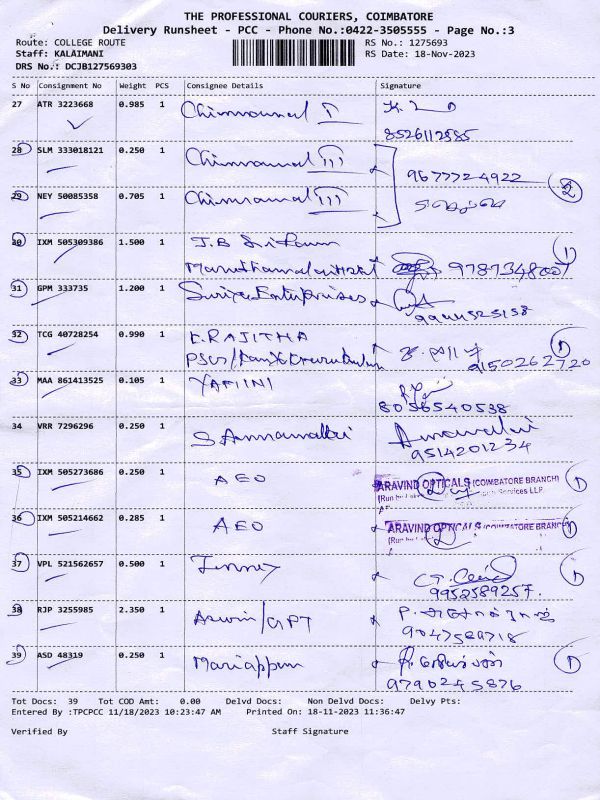 THE PROFESSIONAL COURIERS, COIMBATORE
Delivery Runsheet - PCC - Phone No.:0422-3505555 - Page No.:3
Route: COLLEGE ROUTE RS No.: 1275693
Staff: KALAIMANI RS Date: 18-Nov-2023
DRS No.: DCJB127569303
S No Consignment No Weight PCS Consignee Details Signature
27 ATR 3223668 0.985 1
8526112585
28 SLM 333018121 0.250 1 III
9677724922 2
29 NEY 50085358 0.705 1 III
30 IXM 505309386 1.500 1 J.B 1
31 GPM 333735 1.200 1 Suriya Enterprises
9944525158
32 TCG 40728254 0.990 1 K.RAJITHA 1
9150262720
33 MAA 861413525 0.105 1 YAMINI
8056540538
34 VRR 7296296 0.250 1 S Annamalai
9514201234
35 IXM 505273686 0.250 1 AEO ARAVIND OPTICALS (COIMBATORE BRANCH) 1
Services LLP
36 IXM 505214662 0.285 1 AEO ARAVIND OPTICALS (COIMBATORE BRANCH) 1
37 VPL 521562657 0.500 1 1
9952589257.
38 RJP 3255985 2.350 1 Aswin/GPT
9047589718
39 ASD 48319 0.250 1 Mariappan 1
9790245876
Tot Docs: 39 Tot COD Amt: 0.00 Delvd Docs: Non Delvd Docs: Delvy Pts:
Entered By :TPCPCC 11/18/2023 10:23:47 AM Printed On: 18-11-2023 11:36:47
Verified By Staff Signature